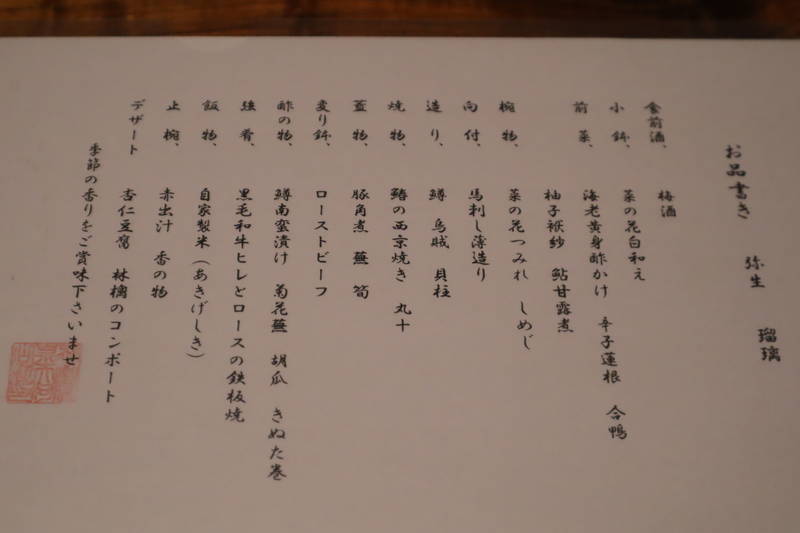 お品書き　弥生　瑠璃
食前酒、　梅酒
小鉢、　菜の花白和え
前菜、　海老黄身酢かけ　辛子蓮根　合鴨
柚子袱紗　鮎甘露煮
椀物、　菜の花つみれ　しめじ
向付、　馬刺し薄造り
造り、　鱒　烏賊　貝柱
焼物、　鰆の西京焼き　丸十
蓋物、　豚角煮　蕪　筍
変り鉢、　ローストビーフ
酢の物、　鱒南蛮漬け　菊花蕪　胡瓜　きぬた巻
強肴、　黒毛和牛ヒレとロースの鉄板焼
飯物、　自家製米（あきげしき）
止椀、　赤出汁　香の物
デザート　杏仁豆腐　林檎のコンポート
季節の香りをご賞味下さいませ